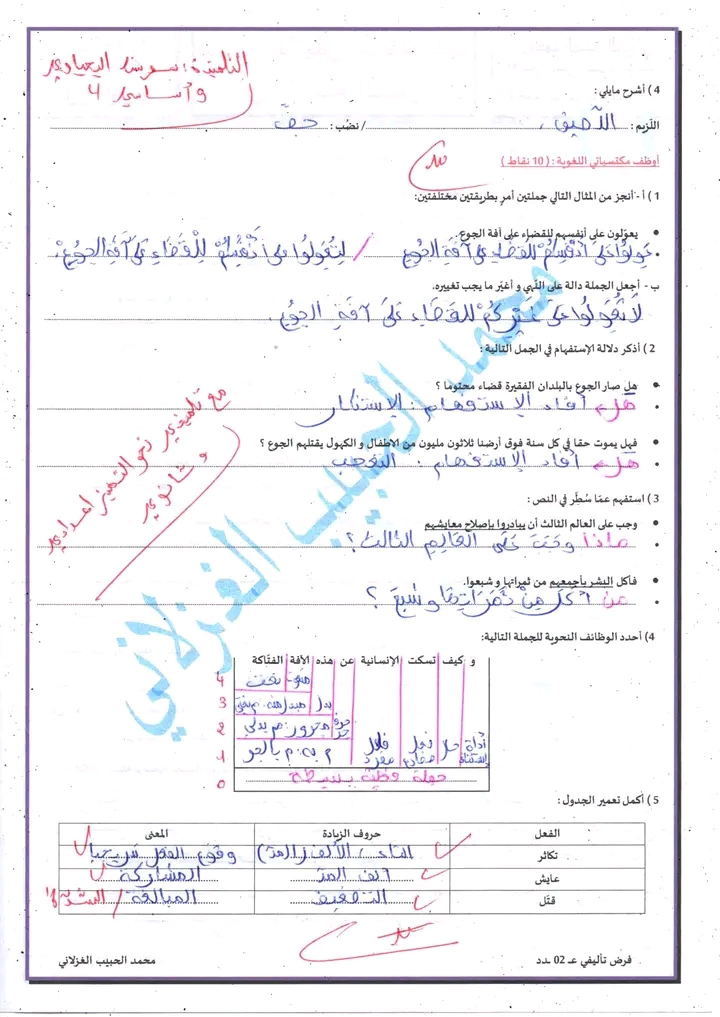 التلميذة: سرسا اليحياوي
9 أساسي 4
4 ) أشرح مايلي :
اللّزيم : اللّصيق / نضُب : جفّ
أوظف مكتسباتي اللغوية : ( 10 نقاط )
1 ) أ - أنجز من المثال التالي جملتين أمر بطريقتين مختلفتين:
يعوّلون على أنفسهم للقضاء على آفة الجوع.
عَوِّلُوا عَلَى أَنْفُسِكُمْ للقَضَاءِ عَلَى آفَةِ الجُوعِ / لِتُعَوِّلُوا على أَنْفُسِكُمْ لِلْقَضَاءِ عَلَى آفَةِ الجُوعِ.
ب - أجعل الجملة دالة على النّهي و أغيّر ما يجب تغييره.
لَا تُعَوِّلُوا عَلَى غَيْرِكُمْ للقَضَاءِ عَلَى آفَةِ الجُوعِ.
2 ) أذكر دلالة الإستفهام في الجمل التالية :
هل صار الجوع بالبلدان الفقيرة قضاء محتوما ؟
هَل: أفاد الإستفهام : الإستنكار
فهل يموت حقا في كل سنة فوق أرضنا ثلاثون مليون من الاطفال و الكهول يقتلهم الجوع ؟
هَل: أفاد الإستفهام : التعجب
مع تلاميذي نحو التميز إعدادي
و ثانوي
3 ) استفهم عمّا سُطِّر في النص :
وجب على العالم الثالث أن يبادروا بإصلاح معايشهم
ماذا وجَبَ عَلَى العَالَمِ الثالث؟
فأكل البشر بأجمعهم من ثمراتها و شبعوا.
مَن أَكَلَ مِنْ ثَمَرَاتِهَا و شَبِعَ ؟
4) أحدد الوظائف النحوية للجملة التالية:
و كيف تسكت الإنسانية عن هذه الآفة الفتّاكة
4 منعوت نعت
3 بدل مبدل منه
2 حرف جر مجرور: م بدلي
1 أداة إستئناف حال فعل مضارع فاعل مفرد م به: م بالجر
0 جملة فعلية بسيطة
5 ) أكمل تعمير الجدول :
الفعل حروف الزيادة المعنى
تكاثر التاء، الألف (المد) وقوع الفعل تدريجيا
عايش ألف المد المشاركة
قتّل التضعيف المبالغة / الشدّة
فرض تأليفي عـ 02 ـدد محمد الحبيب الغزلاني
محمد الحبيب الغزلاني